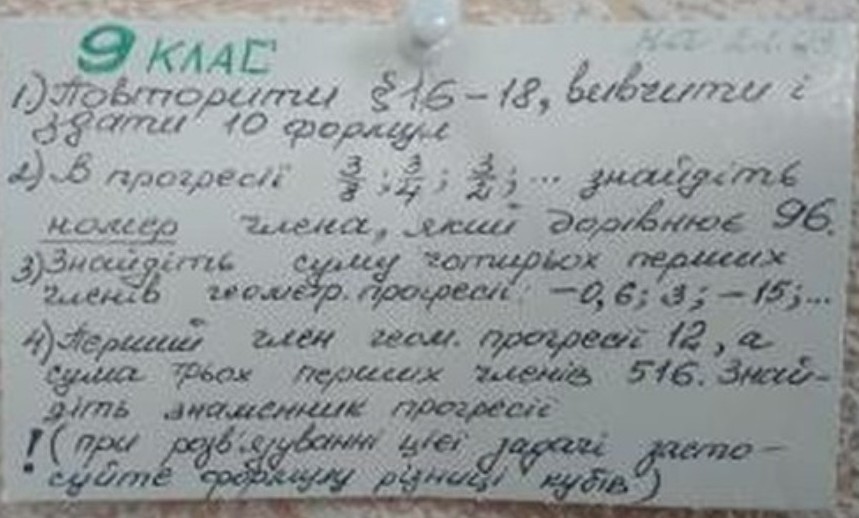 9 КЛАС
1) Повторити §16-18, вивчити і
здати 10 формул
2) В прогресії 3/8; 3/4; 3/2; ... знайдіть
номер члена, який дорівнює 96.
3) Знайдіть суму чотирьох перших
членів геометр. прогресії: -0,6; 3; -15; ...
4) Перший член геом. прогресії 12, а
сума трьох перших членів 516. Знай-
діть знаменник прогресії
! (при розв'язуванні цієї задачі засто-
суйте формулу різниці кубів)